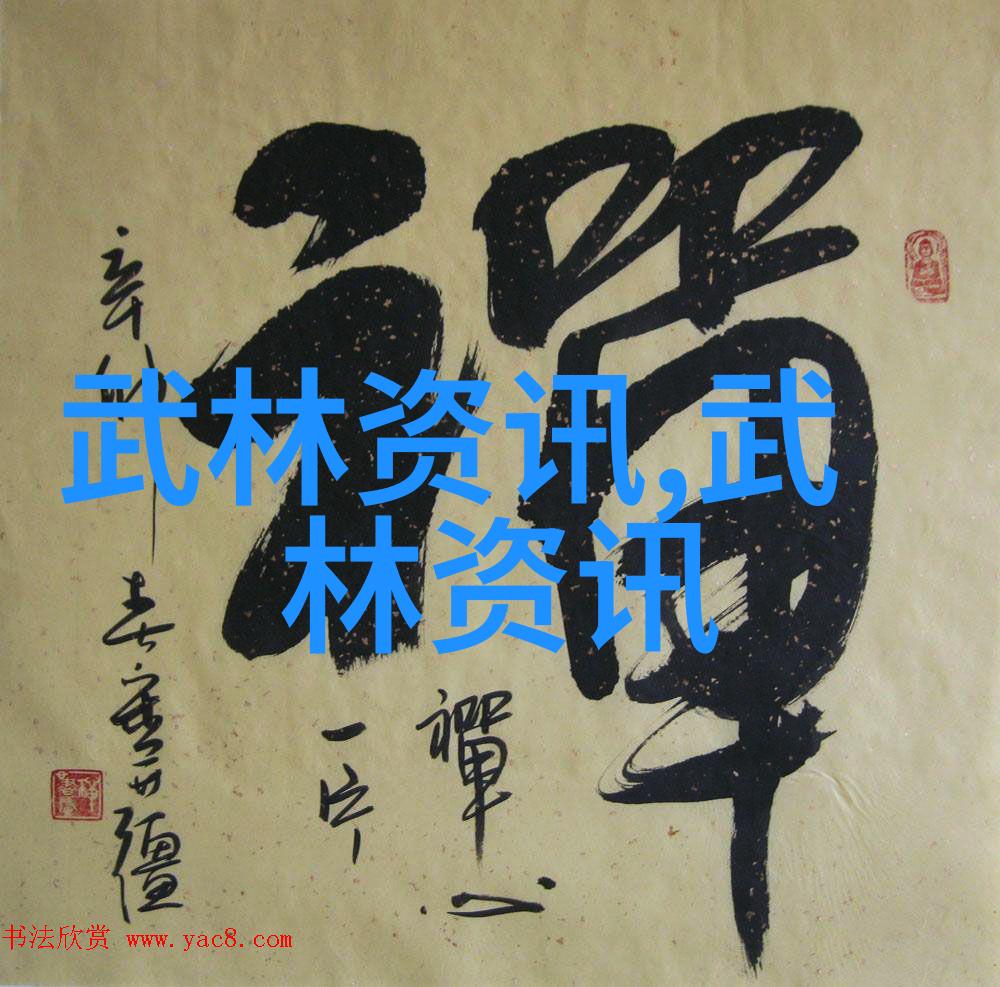 禪
禪心
一片
辛卯春
武林资讯,武
林资讯
书法欣赏 www.yac8.com